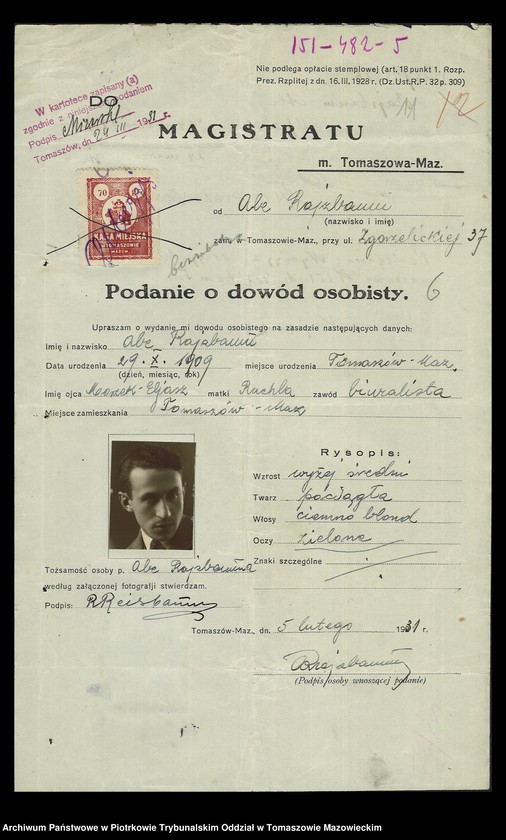 151-482-5
Nie podlega opłacie stemplowej (art. 18 punkt 1. Rozp.
Prez. Rzplitej z dn. 16. III. 1928 r. (Dz. Ust. R. P. 32 p. 309)
12
W kartotece zapisany (a)
zgodnie z niniejszym podaniem
Podpis
Tomaszów, dn. 24 III 1931 r.
DO
MAGISTRATU
m. Tomaszowa-Maz.
70
KASA MIEJSKA
W TOMASZOWIE
MAZOW.
od Abe Rajzbaum
(nazwisko i imię)
zam. w Tomaszowie-Maz., przy ul. Zgorzelickiej 37
Podanie o dowód osobisty. 6
Upraszam o wydanie mi dowodu osobistego na zasadzie następujących danych:
Imię i nazwisko Abe Rajzbaum
Data urodzenia 29. X. 1909 miejsce urodzenia Tomaszów-Maz.
(dzień, miesiąc, rok)
Imię ojca Moszek-Eljasz matki Ruchla zawód biuralista
Miejsce zamieszkania Tomaszów-Maz
Rysopis:
Wzrost wyżej średni
Twarz pociągła
Włosy ciemno blond
Oczy zielone
Znaki szczególne
Tożsamość osoby p. Abe Rajzbauma
według załączonej fotografji stwierdzam.
Podpis: R Reisbaum
Tomaszów-Maz., dn. 5 lutego 1931 r.
ARajzbaum
(Podpis osoby wnoszącej podanie)
Archiwum Państwowe w Piotrkowie Trybunalskim Oddział w Tomaszowie Mazowieckim